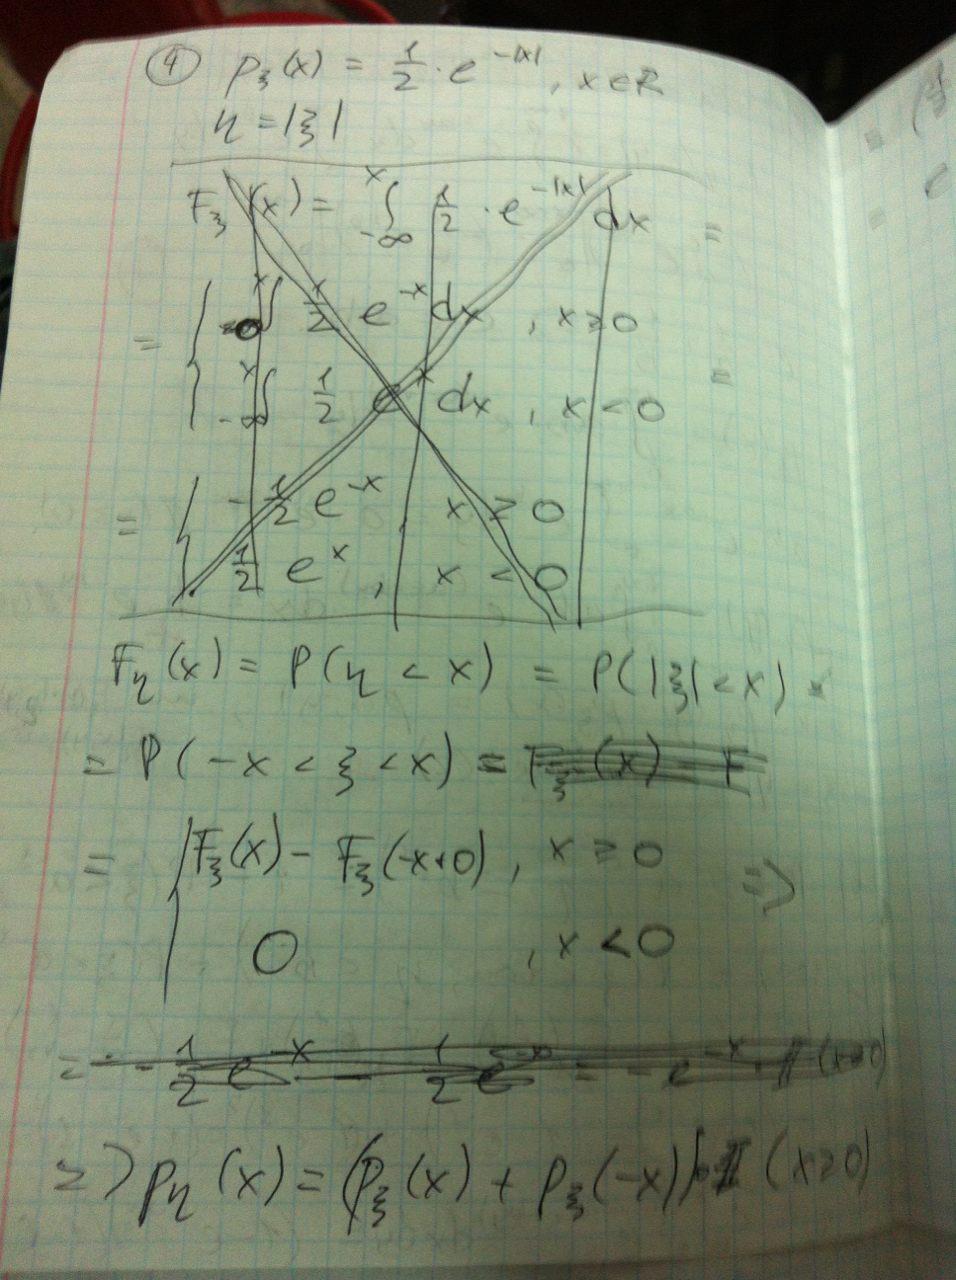 ④ p_ξ(x) = 1/2 · e^{-|x|}, x ∈ R
η = |ξ|
F_ξ(x) = ∫_{-∞}^{x} 1/2 · e^{-|x|} dx =
= { ∫_{0}^{x} 1/2 e^{-x} dx, x ≥ 0
∫_{-∞}^{x} 1/2 e^{x} dx, x < 0 =
= { -1/2 e^{-x}, x ≥ 0
1/2 e^{x}, x < 0
F_η(x) = P(η < x) = P(|ξ| < x) =
= P(-x < ξ < x) = F_ξ(x) - F
= { F_ξ(x) - F_ξ(-x+0), x ≥ 0 =>
0, x < 0
= - 1/2 e^{-x} - 1/2 e^{-x} = - e^{-x} · I(x≥0)
=> p_η(x) = (p_ξ(x) + p_ξ(-x)) · I(x≥0)